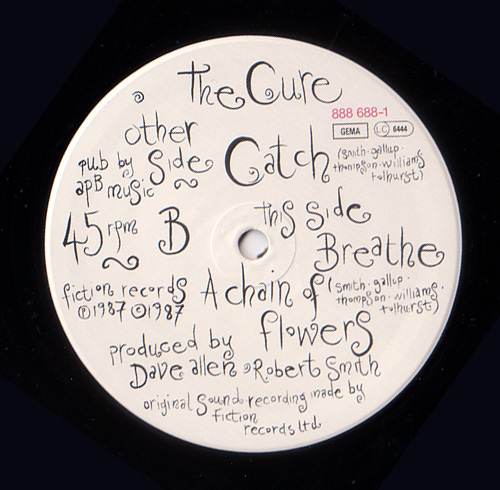 the Cure
888 688-1
GEMA LC 6444
other Side Catch (smith·gallup·
thompson·williams
tolhurst)
pub by
apB music
45 rpm B
this side
Breathe
fiction records
℗1987 ©1987
A chain of flowers
(smith·gallup·
thompson·williams·
tolhurst)
produced by
Dave allen & Robert Smith
original Sound recording made by
fiction
records ltd.